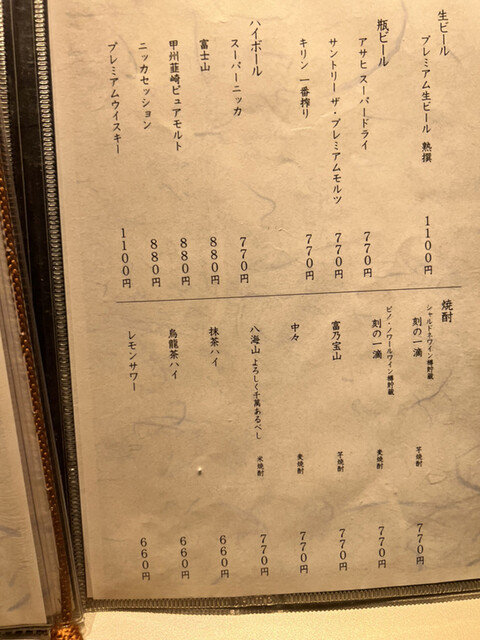 生ビール
プレミアム生ビール 熟撰 1100円
瓶ビール
アサヒ スーパードライ 770円
サントリー ザ・プレミアムモルツ 770円
キリン 一番搾り 770円
ハイボール
スーパーニッカ 770円
富士山 880円
甲州韮崎ピュアモルト 880円
ニッカセッション 880円
プレミアムウイスキー 1100円
焼酎
シャルドネワイン樽貯蔵
刻の一滴 芋焼酎 770円
ピノ・ノワールワイン樽貯蔵
刻の一滴 麦焼酎 770円
富乃宝山 芋焼酎 770円
中々 麦焼酎 770円
八海山 よろしく千萬あるべし 米焼酎 770円
抹茶ハイ 660円
烏龍茶ハイ 660円
レモンサワー 660円